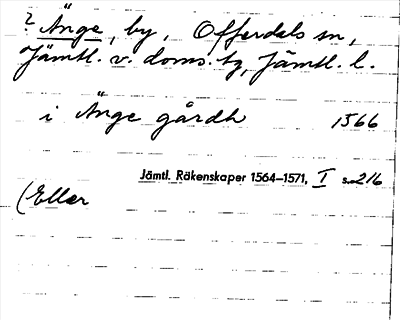 ? Änge, by, Offerdals sn,
Jämtl. v. doms. tg, Jämtl. l.
i Änge gårdh 1566
Jämtl. Räkenskaper 1564–1571, I s. 216
(Eller